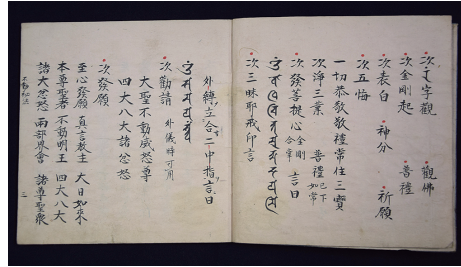 次 字觀 觀佛
次金剛起 普禮
次表白 神分 祈願
次五悔
一切恭敬敬禮常住三寶
次淨三業 普禮 已下如常
次發菩提心 金剛合掌 言曰
次三昧耶戒印言
外縛立合二中指言曰
次勸請 外儀時可用
大聖不動威怒尊
四大八大諸忿怒
次發願
至心發願 真言教主 大日如來
本尊聖者 不動明王 四大八大
諸大忿怒 兩部界會 諸尊聖衆
不動 三